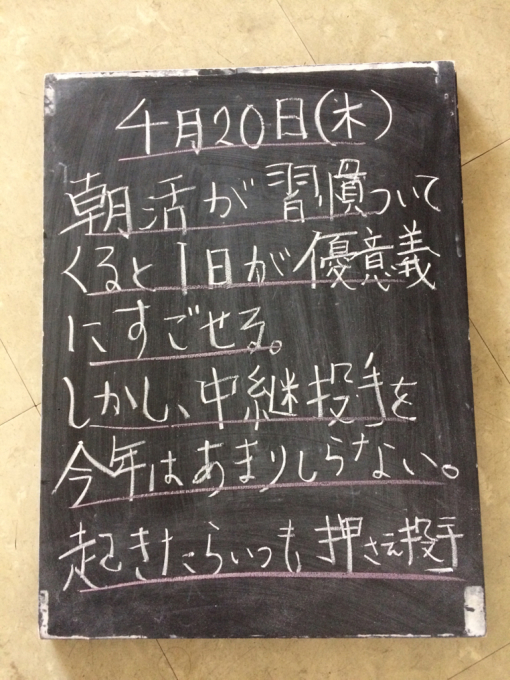 4月20日(木)
朝活が習慣ついて
くると1日が優意義
にすごせる。
しかし、中継投手を
今年はあまりしらない。
起きたらいつも押さえ投手